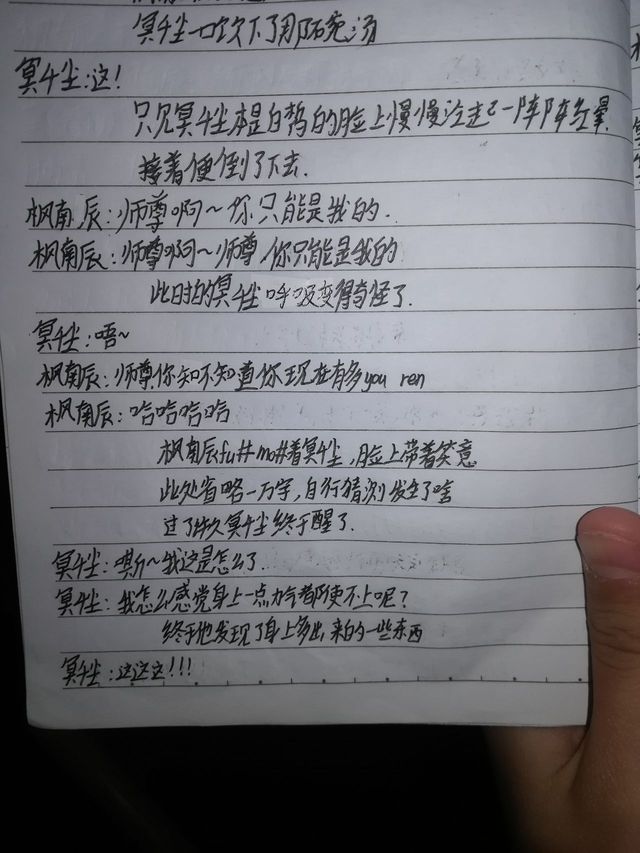 冥千尘一口饮下了那碗汤
冥千尘：这！
只见冥千尘本是白皙的脸上慢慢泛起了一阵阵红晕.
接着便倒了下去.
枫南辰：师尊啊～你只能是我的.
枫南辰：师尊啊～师尊,你只能是我的
此时的冥千尘呼吸变得奇怪了.
冥千尘：唔~
枫南辰：师尊你知不知道你现在有多you ren
枫南辰：哈哈哈哈
枫南辰fu#mo#着冥千尘,脸上带着笑意
此处省略一万字,自行猜测发生了啥
过了许久冥千尘终于醒了.
冥千尘：嘶~我这是怎么了.
冥千尘：我怎么感觉身上一点力气都使不上呢?
终于他发现了身上多出来的一些东西
冥千尘：这这这!!!